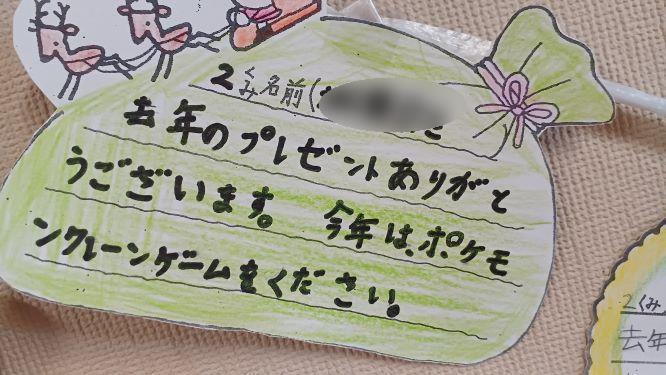 2くみ名前(
去年のプレゼントありがと
うございます。 今年は、ポケモ
ンクレーンゲームをください。
2くみ
去年